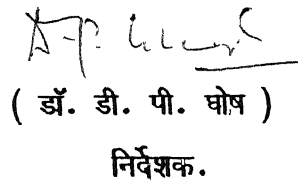 ( डॉ. डी. पी. घोष )
निर्देशक.